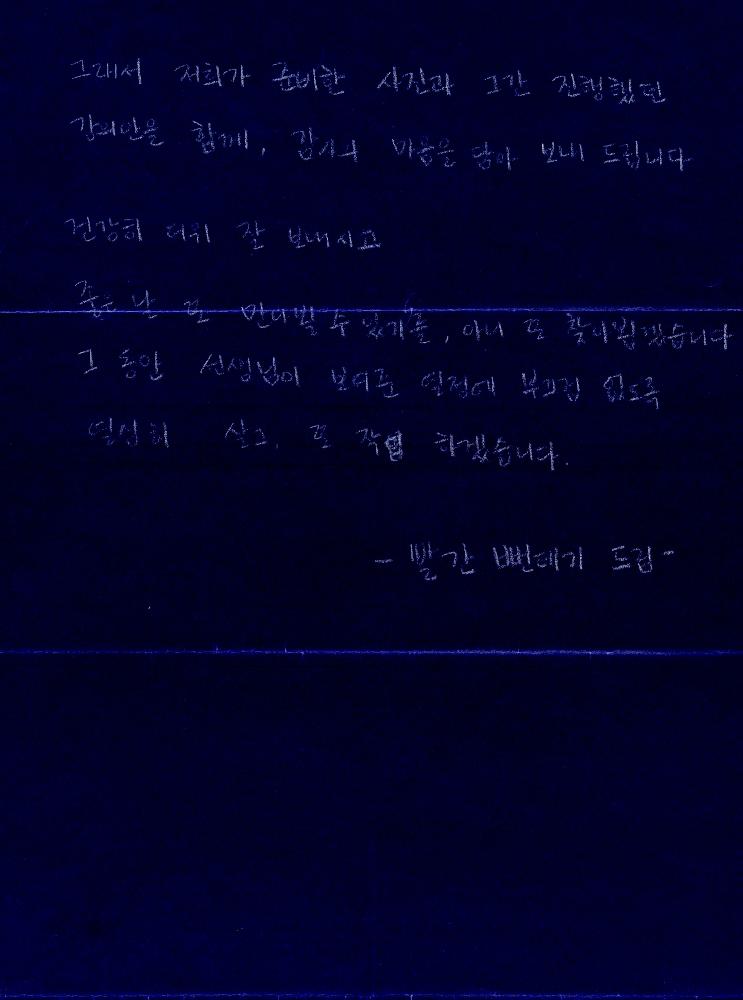 그래서 저희가 준비한 사진과 그간 진행했던
강의안을 함께, 감사의 마음을 담아 보내 드립니다
건강히 더위 잘 보내시고
좋은 날 또 만나뵐 수 있기를, 아니 또 찾아뵙겠습니다
그 동안 선생님이 보여준 열정에 부끄럼 없도록
열심히 살고, 또 작업 하겠습니다.
- 빨간 뻔데기 드림 -